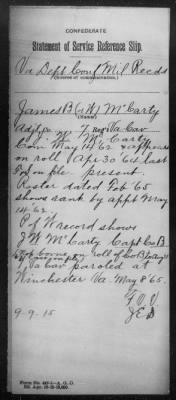 CONFEDERATE
Statement of Service Reference Slip.
Va Dept Conf Mil Recds
(Source of communication.)
James B (& W) McCarty
(Name)
Adjt 7 Reg Va Cav
J. W. McCarty
Com May 14/62 & appears
on roll Apr 30 '64 last
on file present.
Roster dated Feb '65
shows rank by appt May
14 '62.
P of W record shows
J W McCarty Capt Co B
borne on roll of Co B
Va Cav paroled at
Winchester Va. May 8 '65.
9-9-15